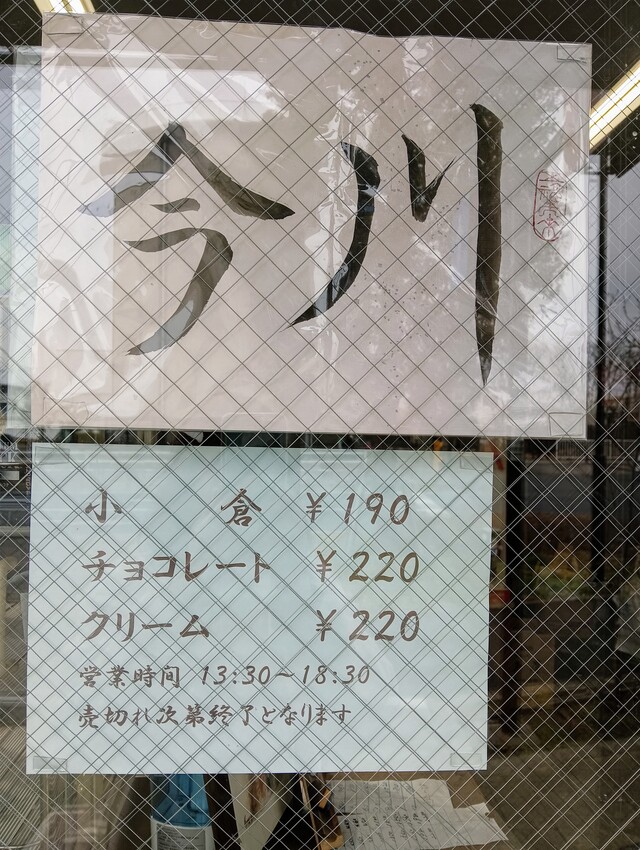 今川
小倉 ¥190
チョコレート ¥220
クリーム ¥220
営業時間 13:30~18:30
売切れ次第終了となります